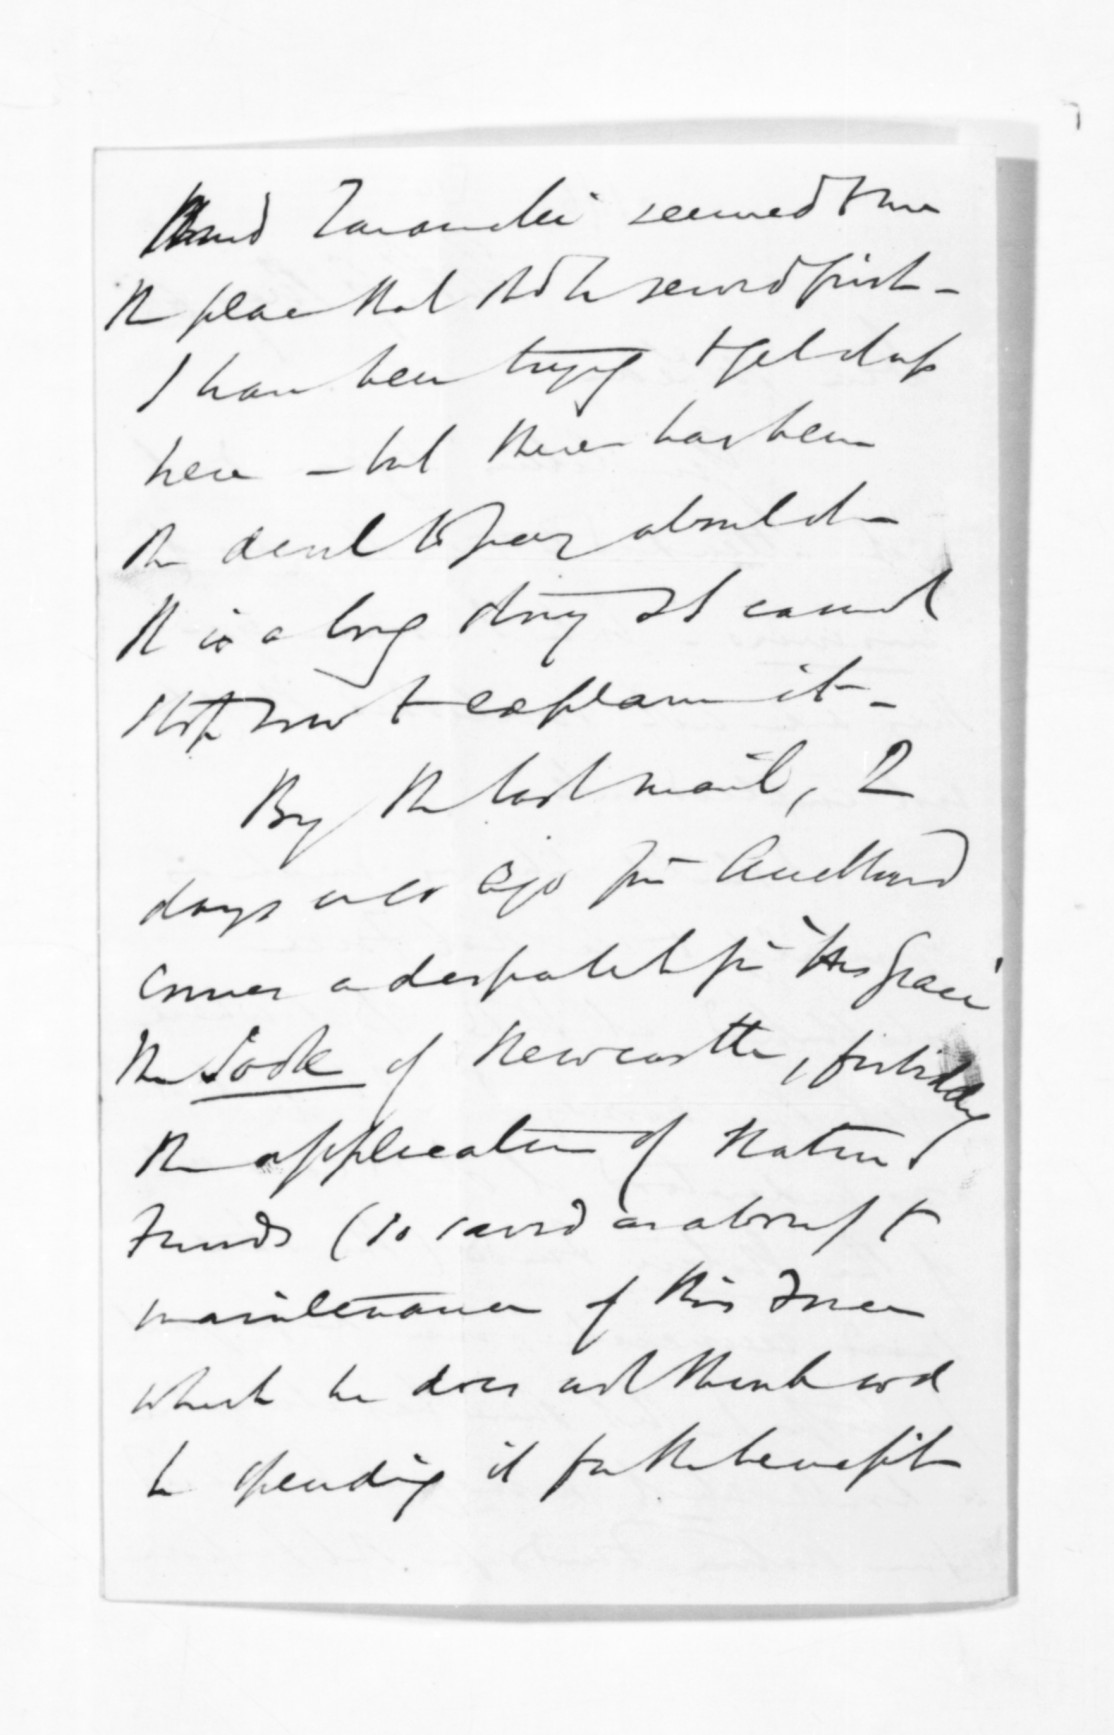 and Taranaki seemed to me
the place that shd be served first -
I have been trying to get
here - but there has been
the devil to pay about it -
It is a long story & I cannot
stop now to explain it -
By the last mail, 2
days ago fm Auckland
comes a despatch fm "His Grace"
the Dook of Newcastle, forbiddg
the application of Native
Funds (so saved as above) to
maintenance of this Force
which he does not think wd
be spending it for the benefit